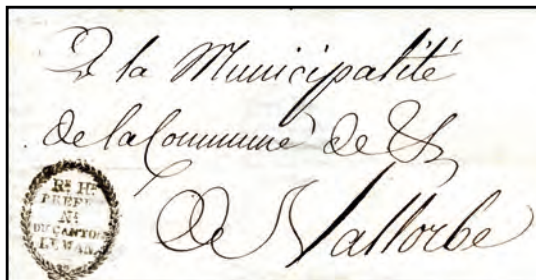 A la Municipalité
de la Commune de
de Vallorbe
Re. He.
PREFET
Nl.
DU CANTON
LEMAN